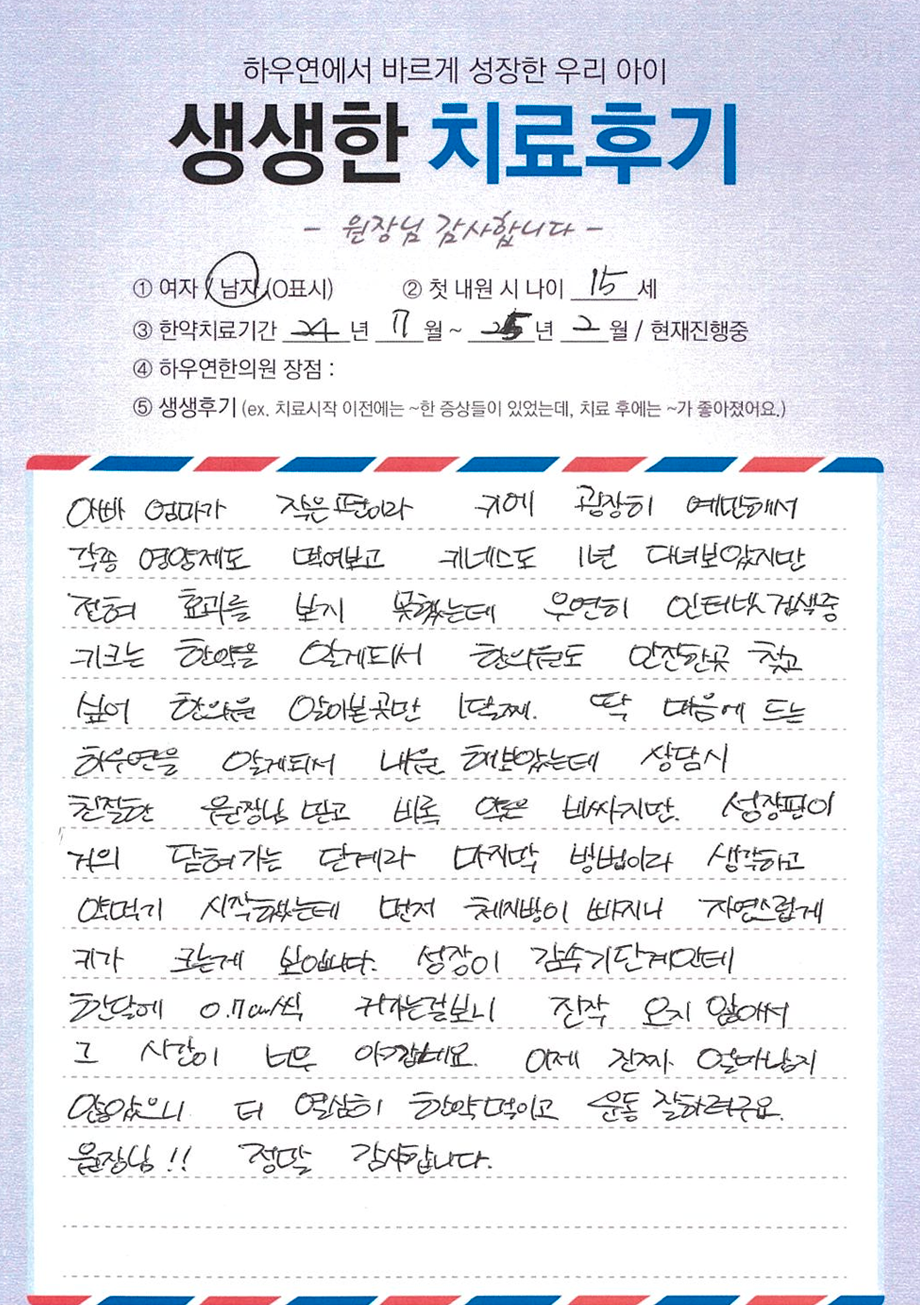 하우연에서 바르게 성장한 우리 아이
생생한 치료후기
- 원장님 감사합니다 -
① 여자 / 남자 (O표시) ② 첫 내원 시 나이 15 세
③ 한약치료기간 24 년 7 월 ~ 25 년 2 월 / 현재진행중
④ 하우연한의원 장점 :
⑤ 생생후기 (ex. 치료시작 이전에는 ~한 증상들이 있었는데, 치료 후에는 ~가 좋아졌어요.)
아빠 엄마가 작은편이라 키에 굉장히 예민해서
각종 영양제도 먹여보고 키네스도 1년 다녀보았지만
전혀 효과를 보지 못했는데 우연히 인터넷 검색중
키크는 한약을 알게되서 한의원도 안전한곳 찾고
싶어 한의원 알아본곳만 1달째. 딱 마음에 드는
하우연을 알게되서 내원 해보았는데 상담시
친절한 원장님 믿고 비록 약은 비싸지만. 성장판이
거의 닫혀가는 단계라 마지막 방법이라 생각하고
약먹기 시작했는데 먼저 체지방이 빠지니 자연스럽게
키가 크는게 보입니다. 성장이 감속기단계인데
한달에 0.7cm씩 커가는걸보니 진작 오지 않아서
그 시간이 너무 아깝네요. 이제 진짜 얼마남지
않았으니 더 열심히 한약먹이고 운동 잘하려구요.
원장님!! 정말 감사합니다.